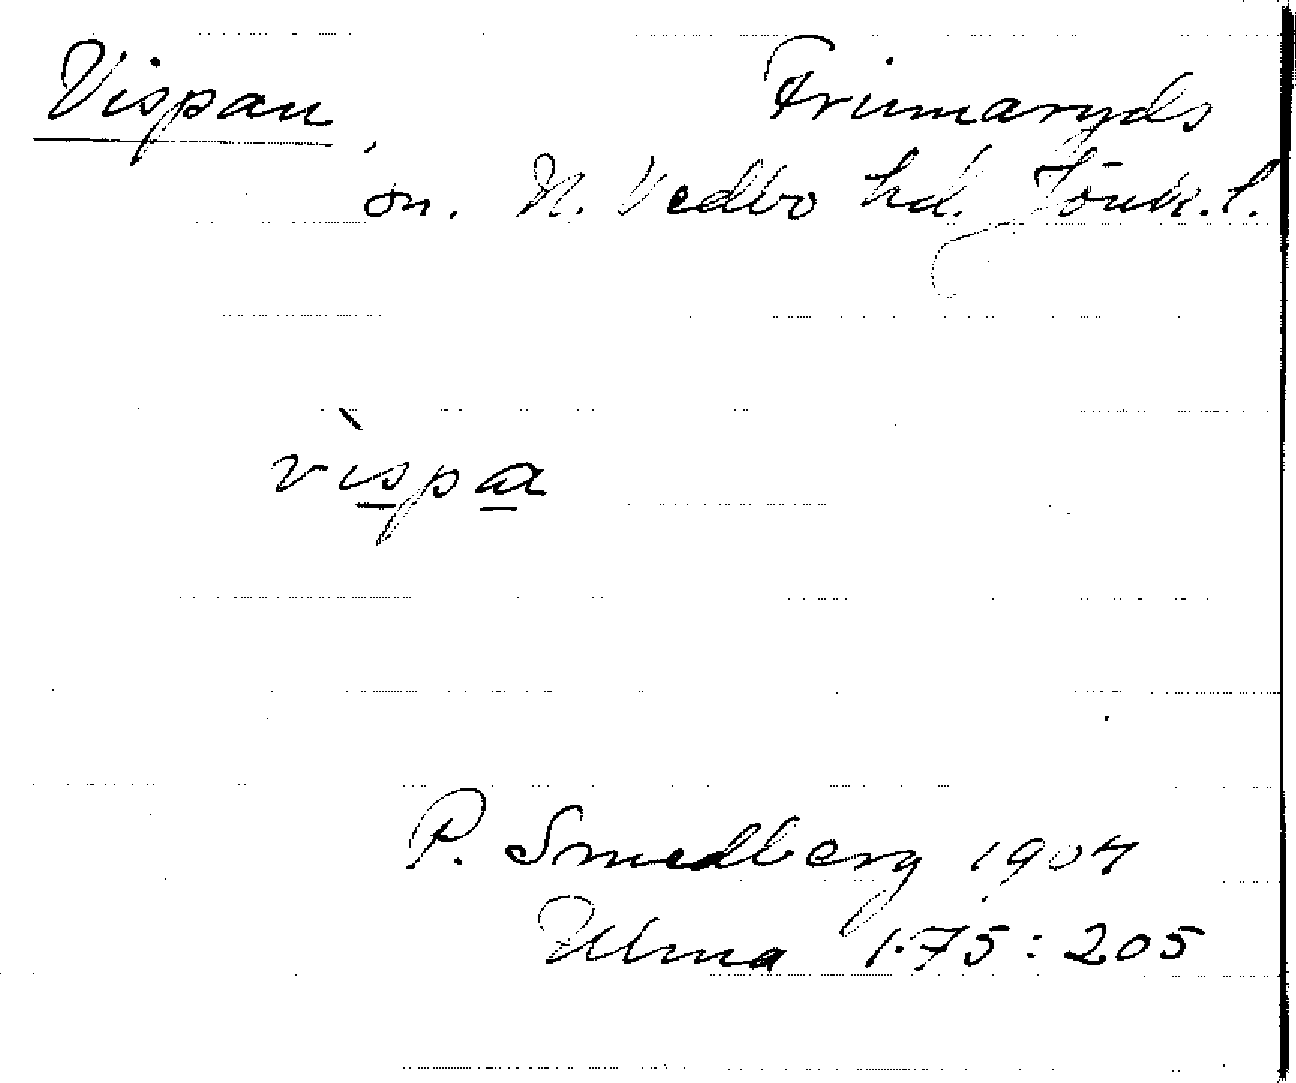 Vispan, Frinnaryds
sn. N. Vedbo hd. Jönk. l.
vìspa
P. Smedberg 1904
Ulma 1:75:205